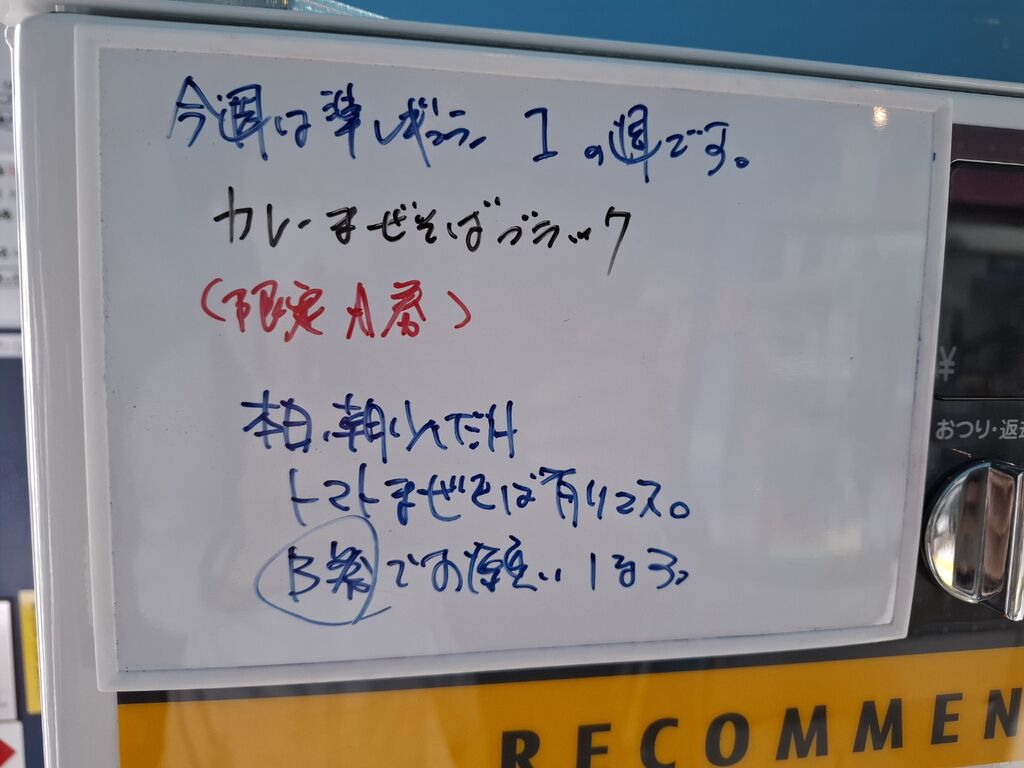 今週は準レギュラー1の週です。
カレーまぜそばブラック
(限定A券)
本日、朝ハんだけ
トマトまぜそば有ります。
B券でお願いします。
¥
おつり・返
RECOMMEN